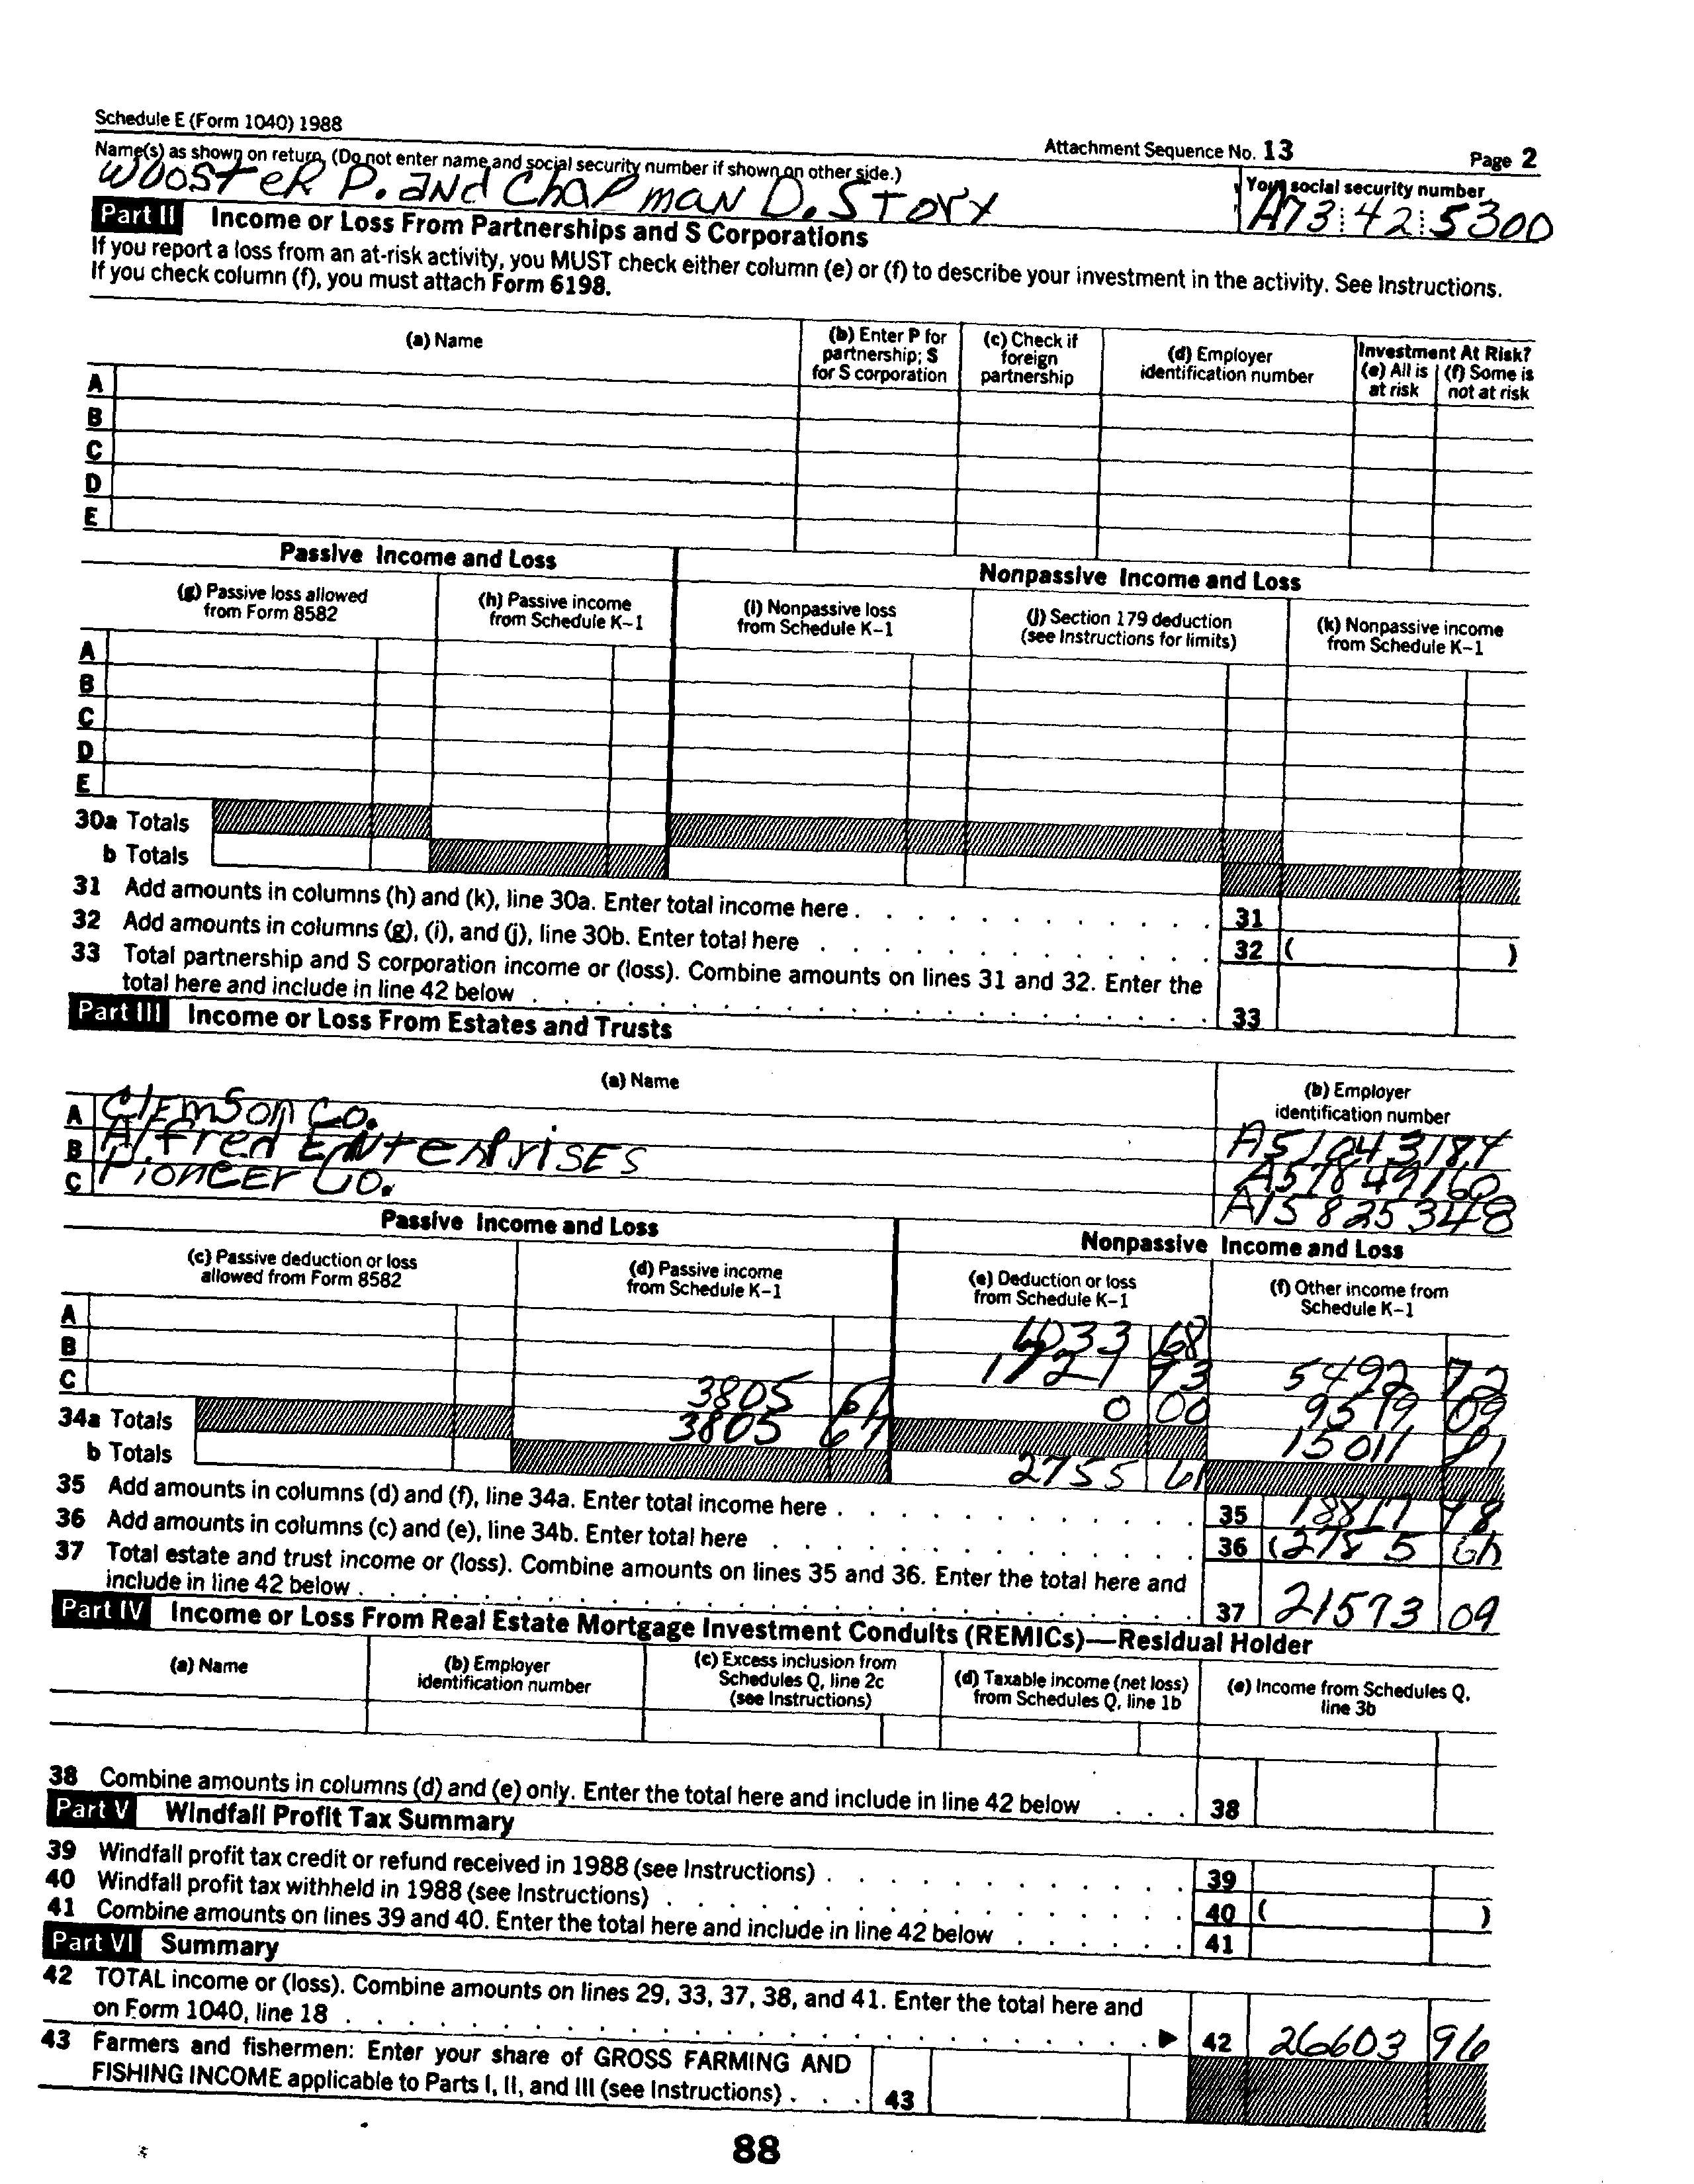 Schedule E (Form 1040) 1988
Attachment Sequence No. 13
Page 2
Name(s) as shown on return (Do not enter name and social security number if shown on other side.)
Your social security number
WOOSTER P. and Chapman D. Story
A73 42 5300
Part II Income or Loss From Partnerships and S Corporations
If you report a loss from an at-risk activity, you MUST check either column (e) or (f) to describe your investment in the activity. See Instructions.
If you check column (f), you must attach Form 6198.
(a) Name
(b) Enter P for partnership; S for S corporation
(c) Check if foreign partnership
(d) Employer identification number
Investment At Risk?
(e) All is at risk
(f) Some is not at risk
A
B
C
D
E
Passive Income and Loss
Nonpassive Income and Loss
(g) Passive loss allowed from Form 8582
(h) Passive income from Schedule K–1
(i) Nonpassive loss from Schedule K–1
(j) Section 179 deduction (see Instructions for limits)
(k) Nonpassive income from Schedule K–1
A
B
C
D
E
30a Totals
b Totals
31 Add amounts in columns (h) and (k), line 30a. Enter total income here . . . 31
32 Add amounts in columns (g), (i), and (j), line 30b. Enter total here . . . 32 ( )
33 Total partnership and S corporation income or (loss). Combine amounts on lines 31 and 32. Enter the
total here and include in line 42 below . . . 33
Part III Income or Loss From Estates and Trusts
(a) Name
(b) Employer identification number
A Clemson Co. A51043184
B Alfred Enterprises A57849160
C Pioneer Co. A15825348
Passive Income and Loss
Nonpassive Income and Loss
(c) Passive deduction or loss allowed from Form 8582
(d) Passive income from Schedule K–1
(e) Deduction or loss from Schedule K–1
(f) Other income from Schedule K–1
A 68
B 5492 72
C 3805 0 00
34a Totals 3805 67 15011 81
b Totals 2755 61
35 Add amounts in columns (d) and (f), line 34a. Enter total income here . . . 35 18817 48
36 Add amounts in columns (c) and (e), line 34b. Enter total here . . . 36 (
37 Total estate and trust income or (loss). Combine amounts on lines 35 and 36. Enter the total here and
include in line 42 below . . . 37 21573 09
Part IV Income or Loss From Real Estate Mortgage Investment Conduits (REMICs)—Residual Holder
(a) Name
(b) Employer identification number
(c) Excess inclusion from Schedules Q, line 2c (see Instructions)
(d) Taxable income (net loss) from Schedules Q, line 1b
(e) Income from Schedules Q, line 3b
38 Combine amounts in columns (d) and (e) only. Enter the total here and include in line 42 below . . . 38
Part V Windfall Profit Tax Summary
39 Windfall profit tax credit or refund received in 1988 (see Instructions) . . . 39
40 Windfall profit tax withheld in 1988 (see Instructions) . . . 40 ( )
41 Combine amounts on lines 39 and 40. Enter the total here and include in line 42 below . . . 41
Part VI Summary
42 TOTAL income or (loss). Combine amounts on lines 29, 33, 37, 38, and 41. Enter the total here and
on Form 1040, line 18 . . . ▶ 42 26603 96
43 Farmers and fishermen: Enter your share of GROSS FARMING AND
FISHING INCOME applicable to Parts I, II, and III (see Instructions) . . . 43
88